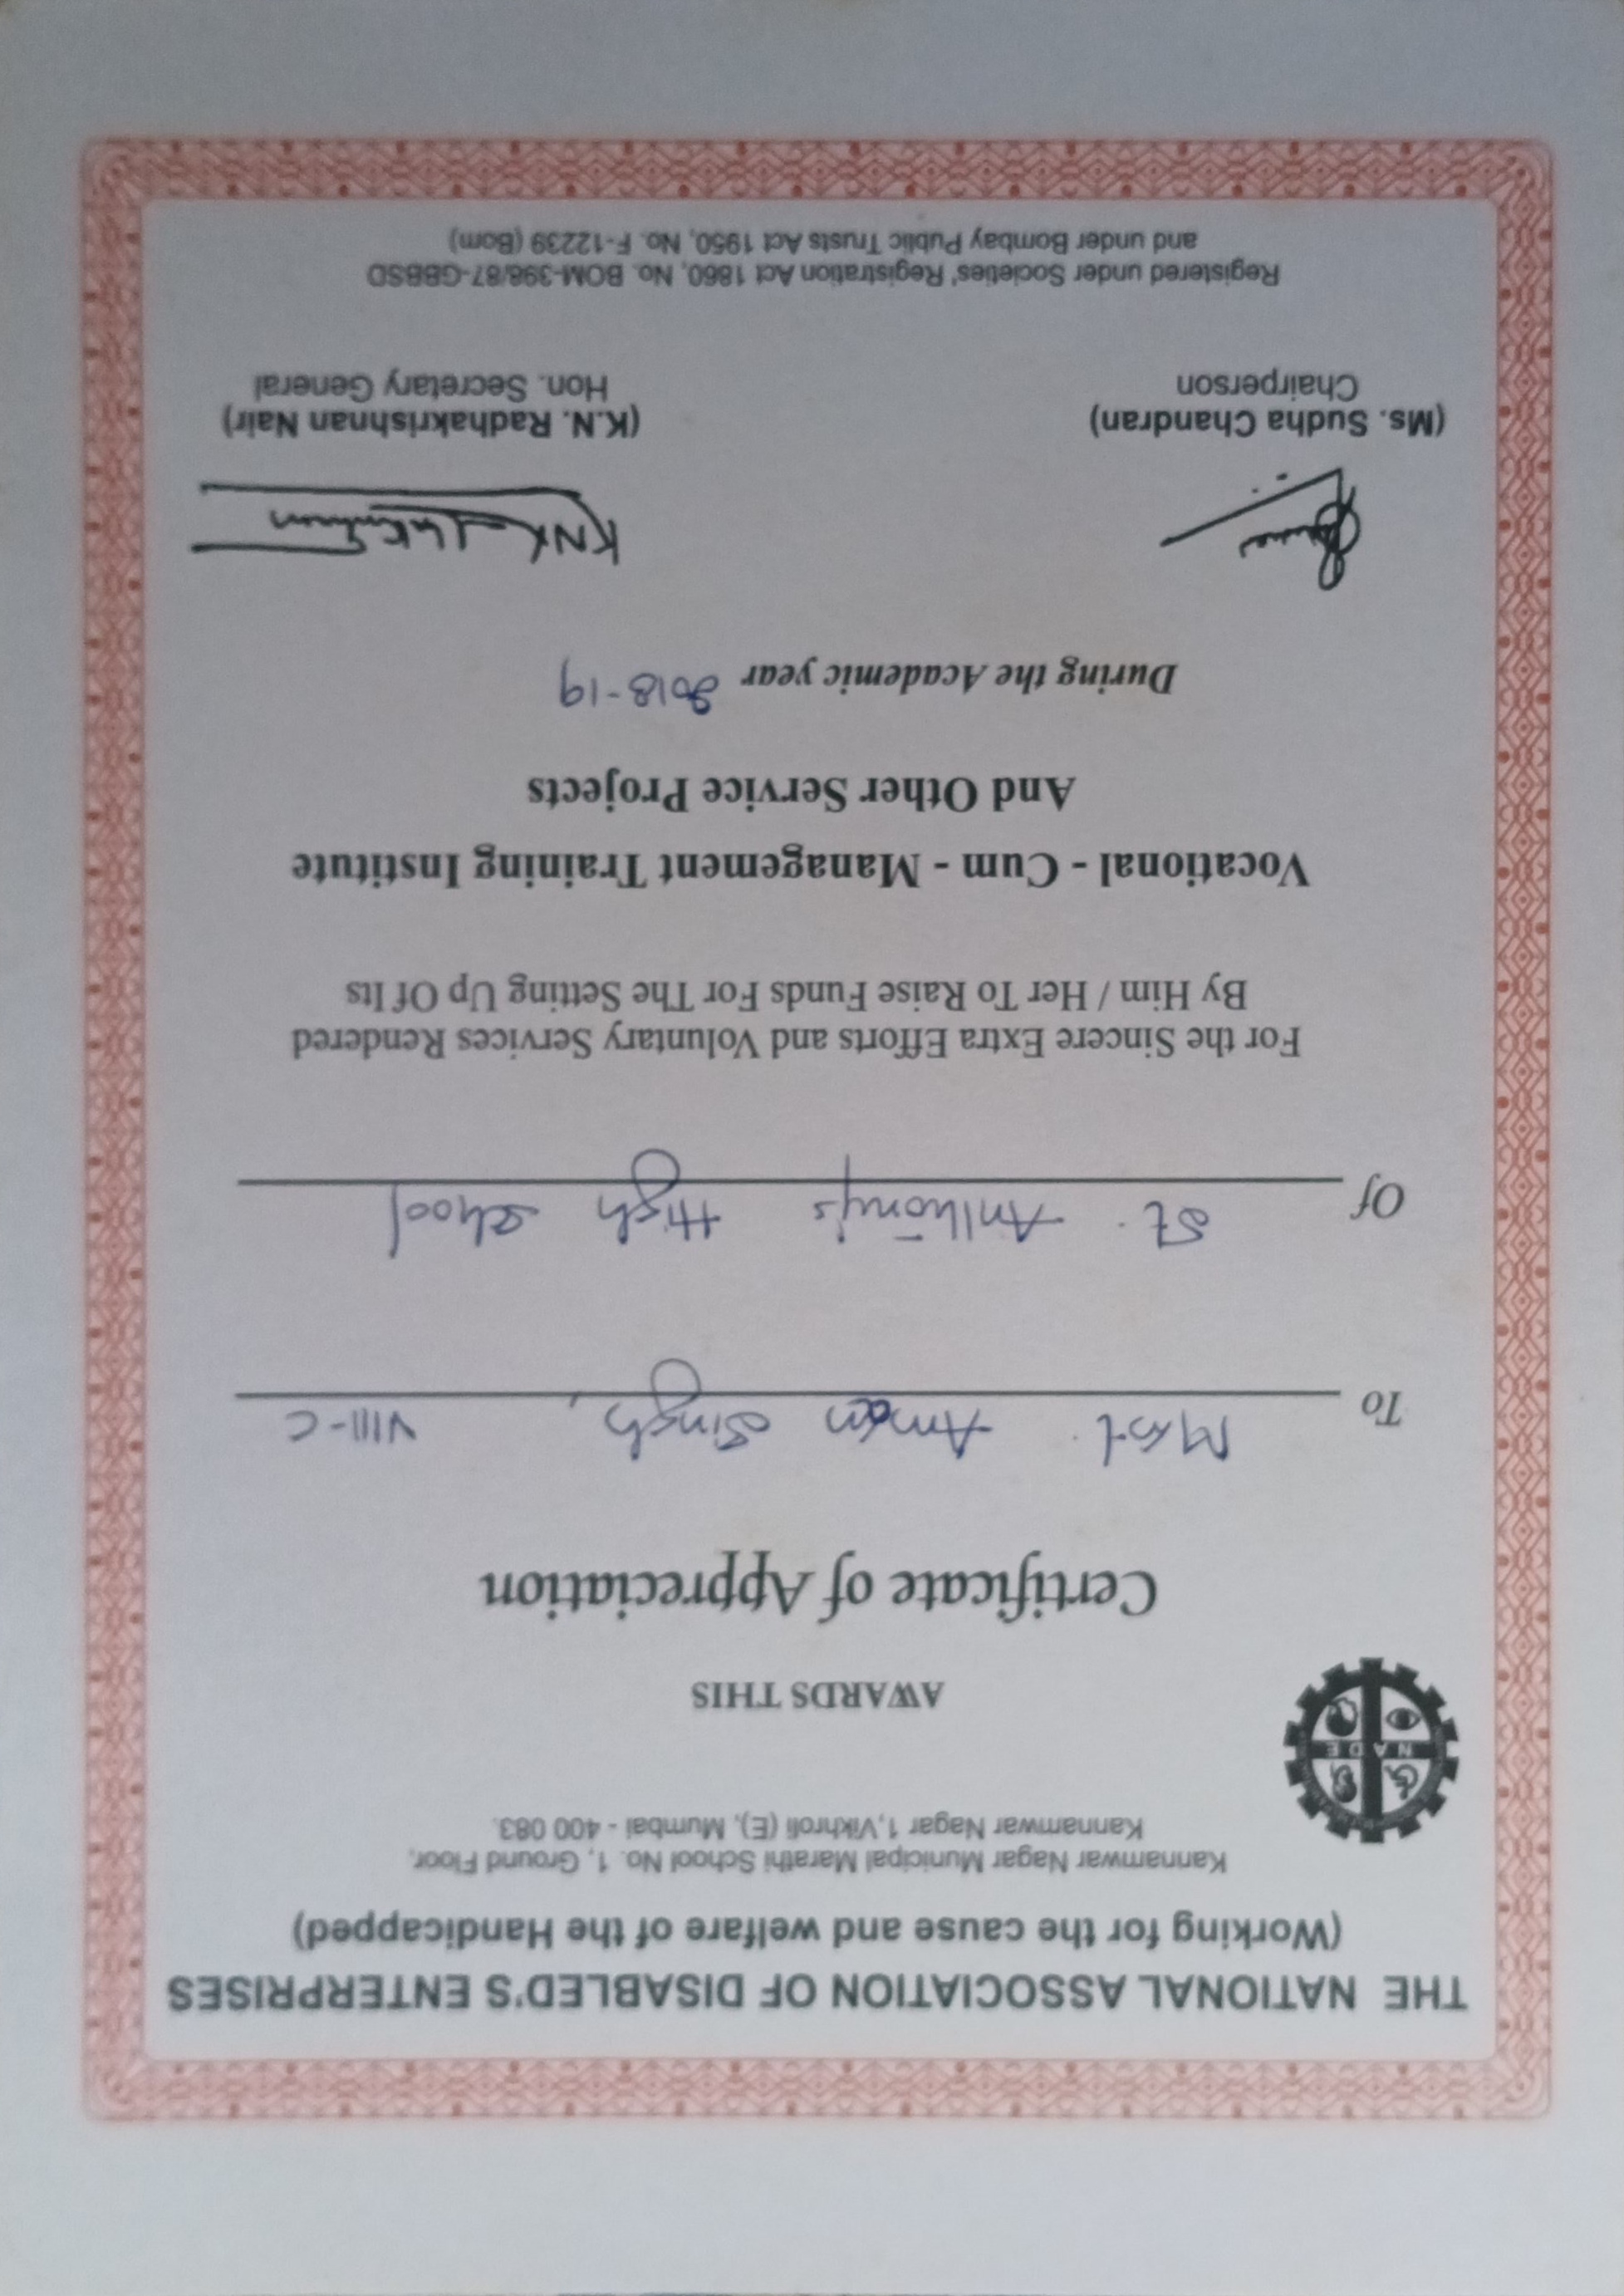 THE NATIONAL ASSOCIATION OF DISABLED'S ENTERPRISES
(Working for the cause and welfare of the Handicapped)
Kannamwar Nagar Municipal Marathi School No. 1, Ground Floor,
Kannamwar Nagar 1, Vikhroli (E), Mumbai - 400 083.
NADE
AWARDS THIS
Certificate of Appreciation
To Mast. Aman Singh, VIII-C
Of St. Anthony's High School
For the Sincere Extra Efforts and Voluntary Services Rendered
By Him / Her To Raise Funds For The Setting Up Of Its
Vocational - Cum - Management Training Institute
And Other Service Projects
During the Academic year 2018-19
(Ms. Sudha Chandran) (K.N. Radhakrishnan Nair)
Chairperson Hon. Secretary General
Registered under Societies' Registration Act 1860, No. BOM-398/87-GBBSD
and under Bombay Public Trusts Act 1950, No. F-12239 (Bom)